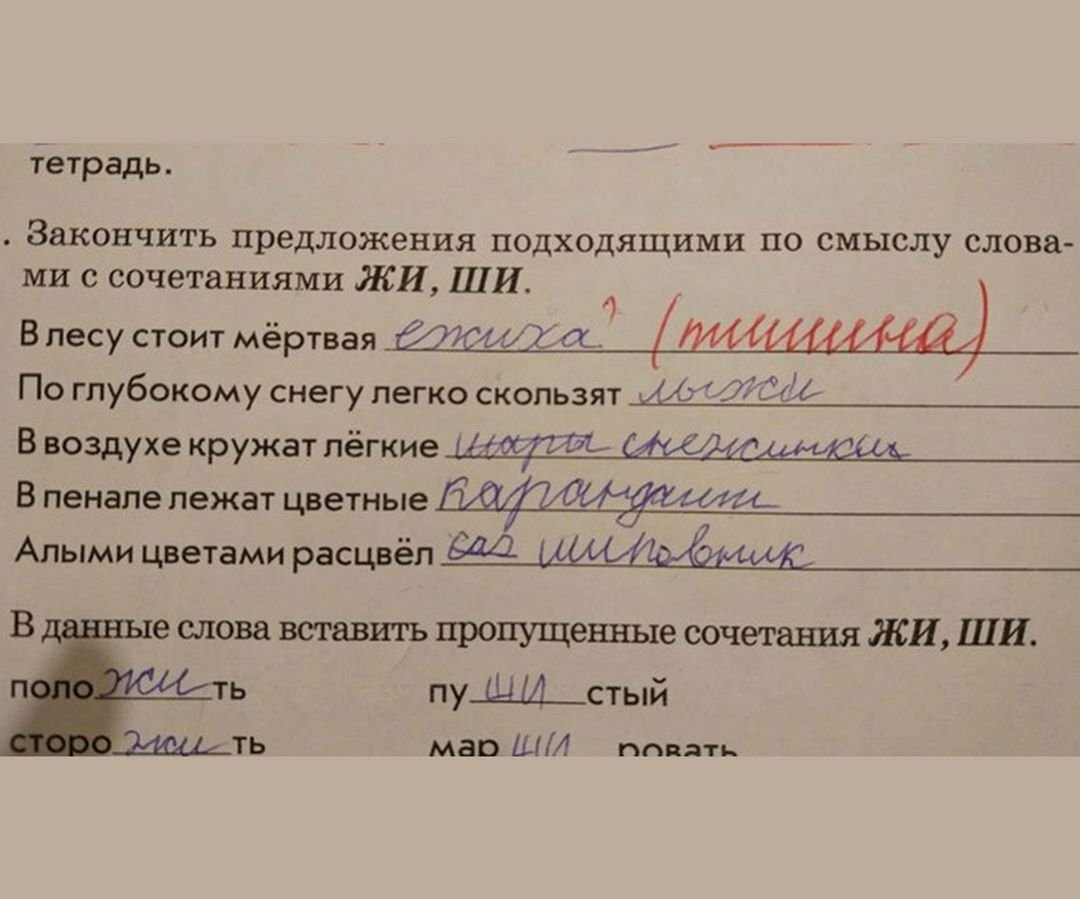 тетрадь.
. Закончить предложения подходящими по смыслу слова-
ми с сочетаниями ЖИ, ШИ.
В лесу стоит мёртвая ежиха ? (тишина)
По глубокому снегу легко скользят лыжи
В воздухе кружат лёгкие шары снежинки
В пенале лежат цветные карандаши
Алыми цветами расцвёл сад шиповник
В данные слова вставить пропущенные сочетания ЖИ, ШИ.
поло жи ть пу ши стый
сторо жи ть мар ши ровать